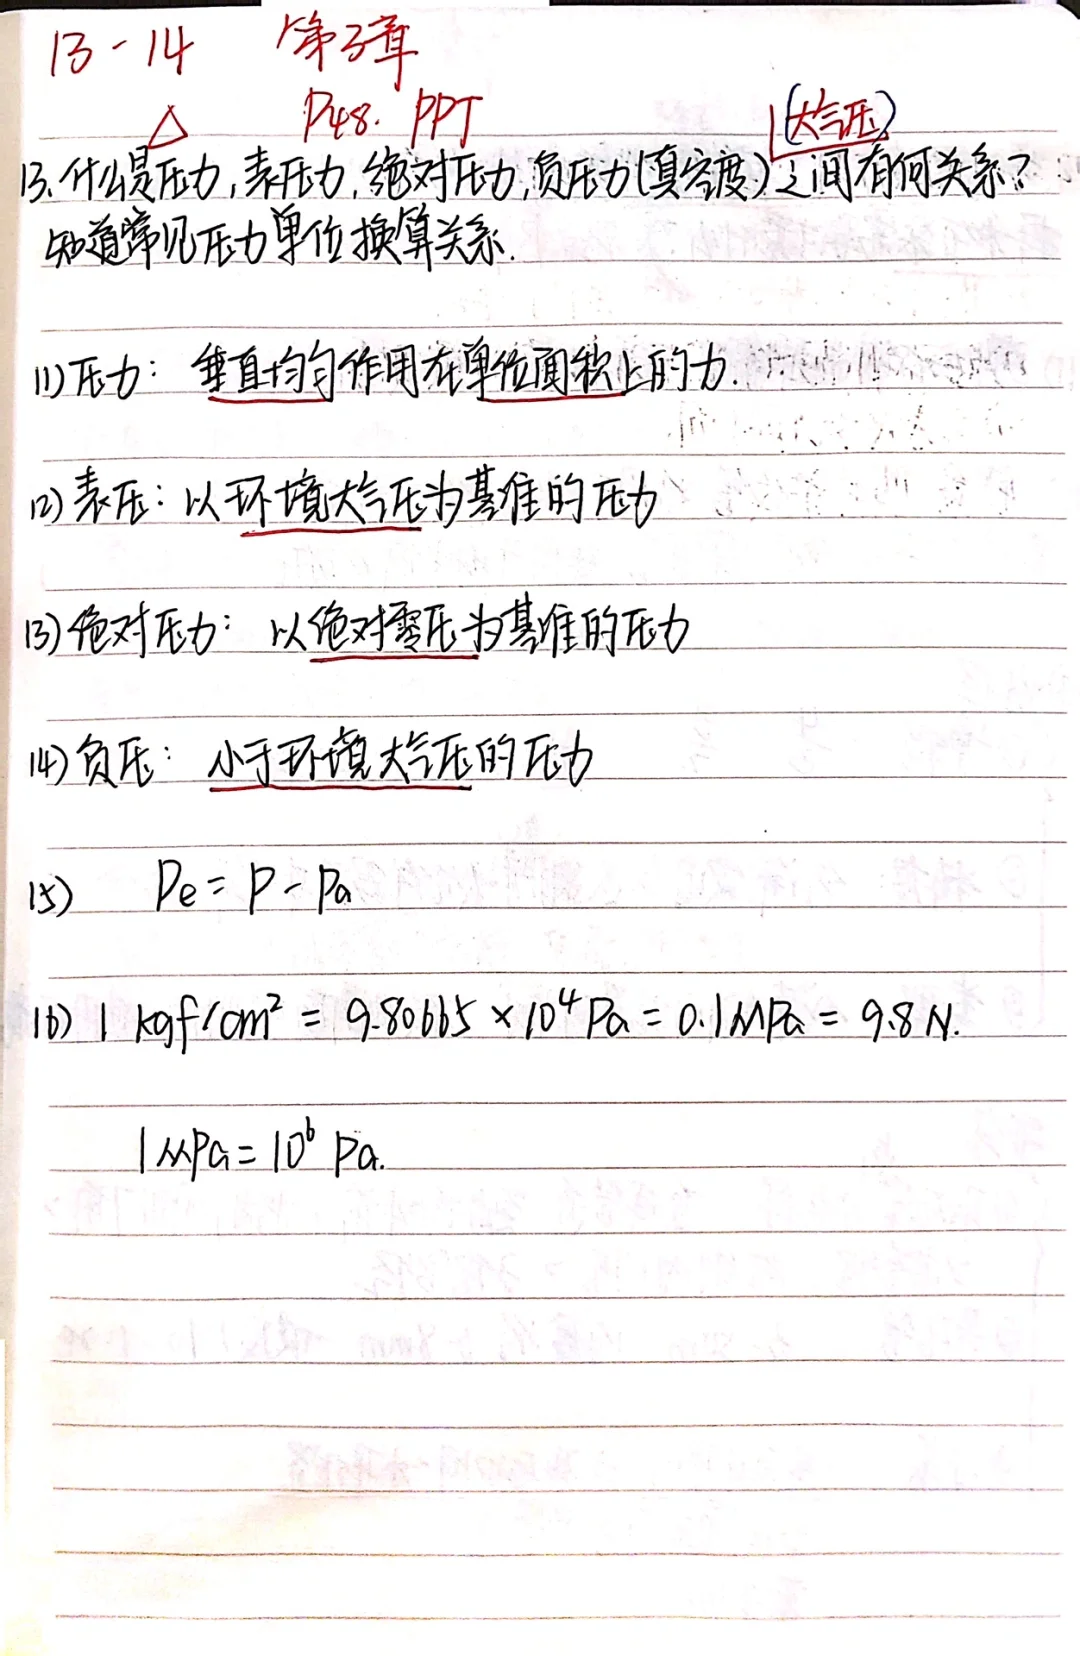 13-14 第3章
P48. PPT
(大气压)
13.什么是压力,表压力,绝对压力,负压力(真空度)之间有何关系?
知道常见压力单位换算关系.
(1)压力: 垂直均匀作用在单位面积上的力.
(2)表压: 以环境大气压为基准的压力
(3)绝对压力: 以绝对零压为基准的压力
(4)负压: 小于环境大气压的压力
(5) Pe = P - Pa
(6) 1 kgf/cm² = 9.80665 × 10⁴ Pa = 0.1MPa = 9.8 N.
1MPa = 10⁶ Pa.